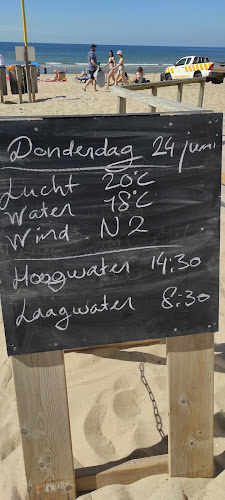 Donderdag 24 juni
Lucht 20°C
Water 18°C
Wind N2
Hoogwater 14:30
Laagwater 8:30